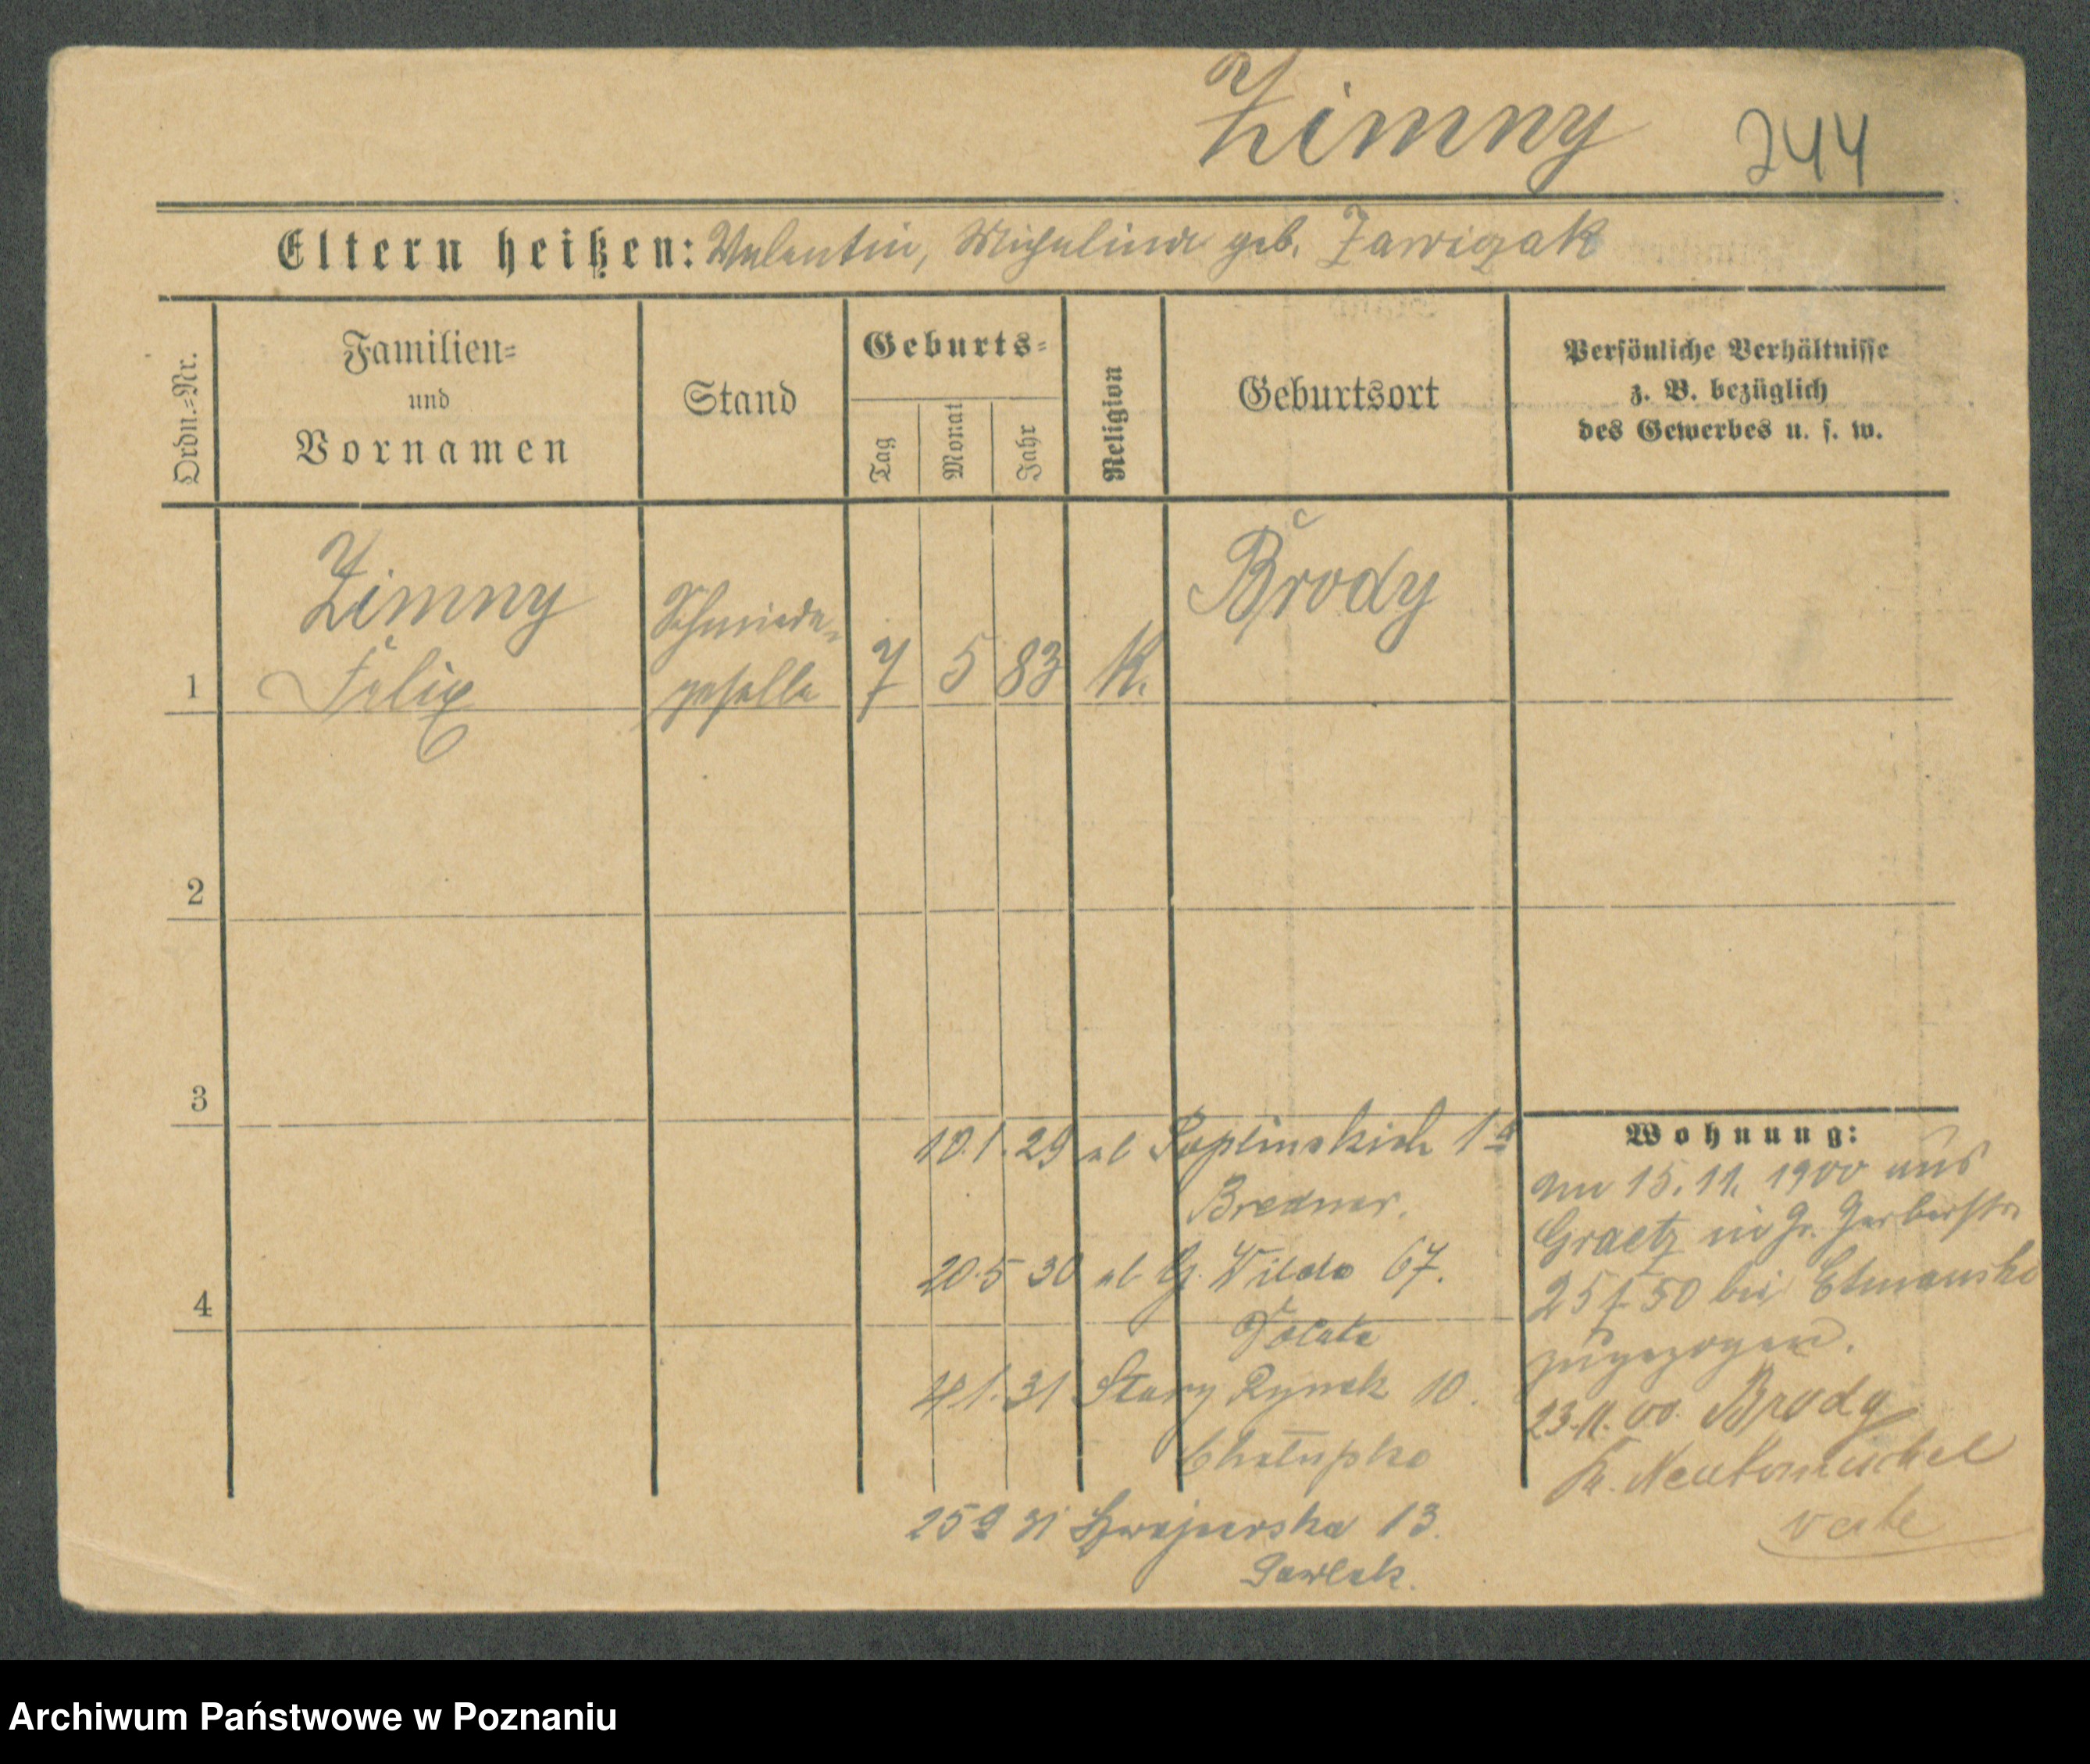 Zimny 244
Eltern heißen: Valentin, Michalina geb. Zawiczak
Ordn.-Nr.
Familien-
und
Vornamen
Stand
Geburts-
Tag
Monat
Jahr
Religion
Geburtsort
Persönliche Verhältnisse
z. B. bezüglich
des Gewerbes u. s. w.
1
Zimny
Felix
Schmiede-
geselle
7 5 83 K.
Brody
2
3
10.1.29 ul Poplinskich 1a
20.5 30 ul G. Wilda 67.
4 1.31 Stary Rynek 10.
Chałupka
25 9 31 13.
Pawlak.
4
Wohnung:
Am 15.11. 1900 aus
Graetz in Gr. Gerberstr.
25 f. 50 bei Etmanska
zugezogen.
23.11.00. Brody
Kr. Neutomischel
verte
Archiwum Państwowe w Poznaniu